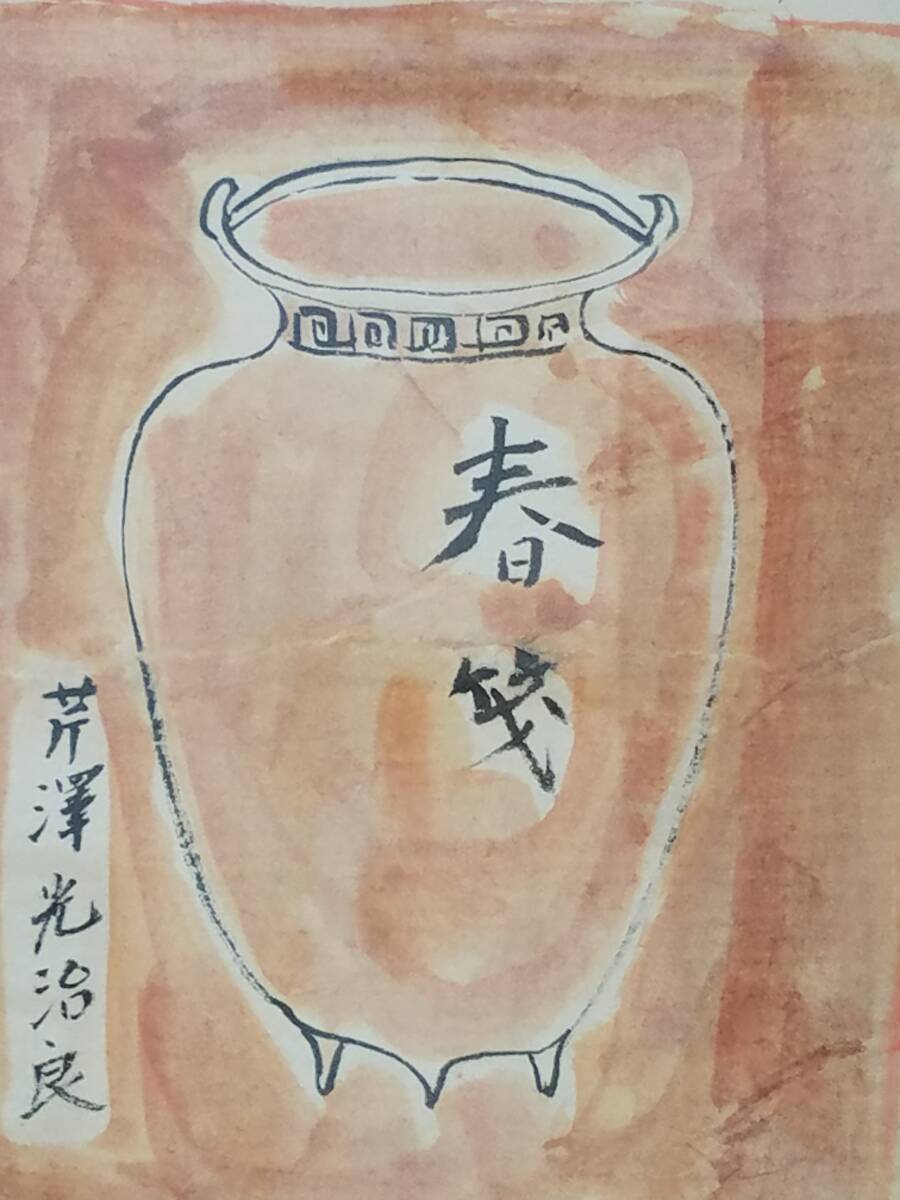 春箋
芹澤光治良